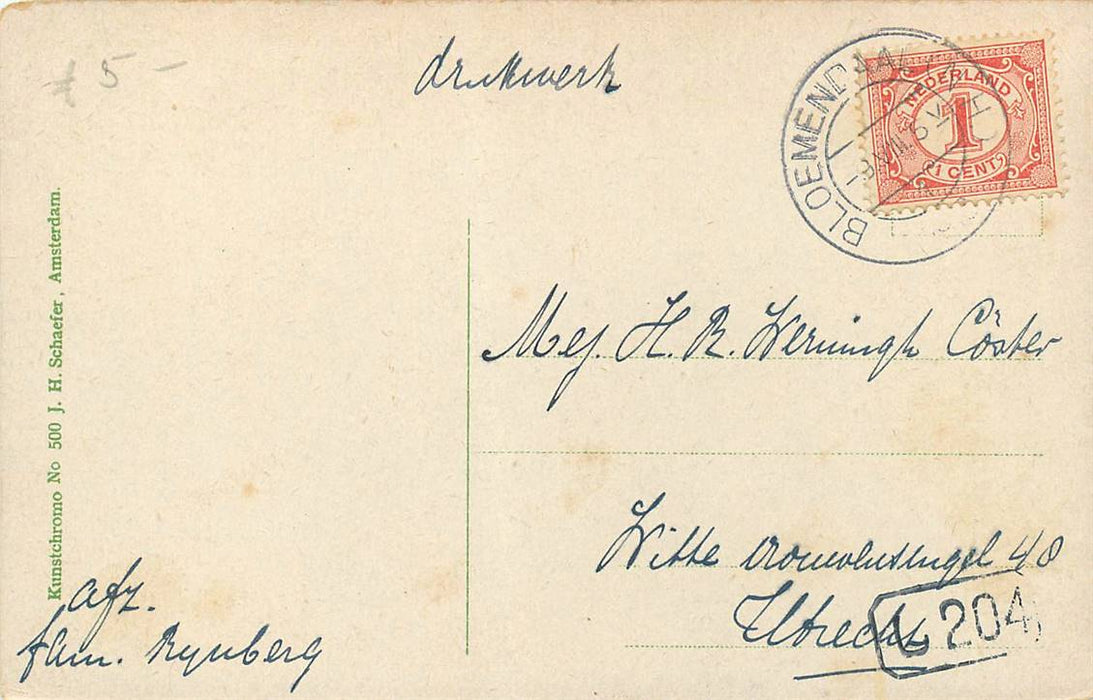 £ 5 –
drukwerk
BLOEMENDAAL
NEDERLAND
1
(1 CENT)
Mej. H. R. Werningh Cöster
Witte vrouwensingel 48
Utrecht
204
Kunstchromo No 500 J. H. Schaefer, Amsterdam.
afz.
fam. Rynberg